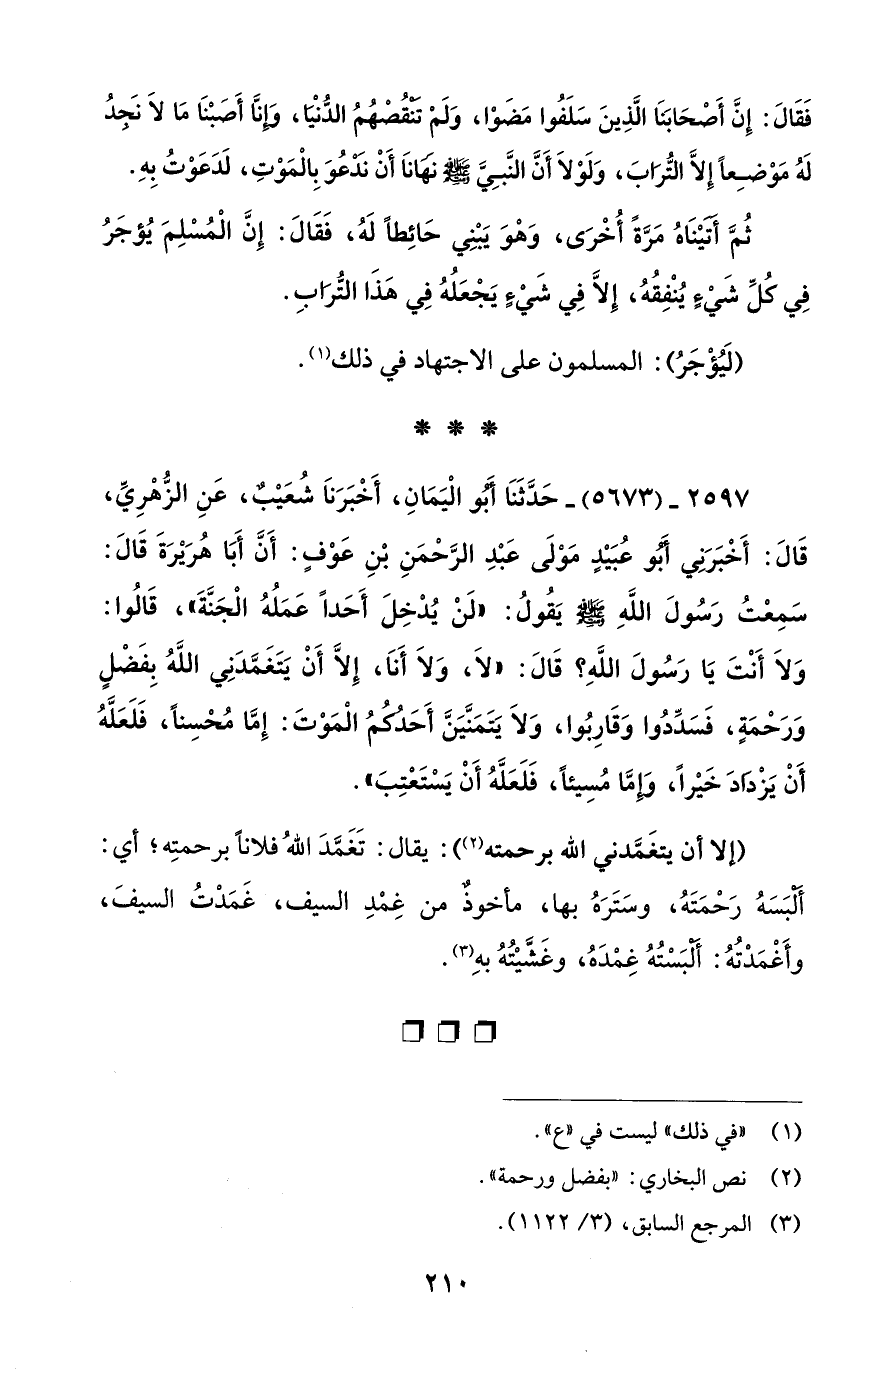 فَقَالَ: إِنَّ أَصْحَابَنَا الَّذِينَ سَلَفُوا مَضَوْا، وَلَمْ تَنْقُصْهُمُ الدُّنْيَا، وَإِنَّا أَصَبْنَا مَا لاَ نَجِدُ
لَهُ مَوْضِعاً إِلاَّ التُّرَابَ، وَلَوْلاَ أَنَّ النَّبِيَّ ﷺ نَهَانَا أَنْ نَدْعُوَ بِالْمَوْتِ، لَدَعَوْتُ بِهِ.
ثُمَّ أَتَيْنَاهُ مَرَّةً أُخْرَى، وَهْوَ يَبْنِي حَائِطاً لَهُ، فَقَالَ: إِنَّ الْمُسْلِمَ يُؤْجَرُ
فِي كُلِّ شَيْءٍ يُنْفِقُهُ، إِلاَّ فِي شَيْءٍ يَجْعَلُهُ فِي هَذَا التُّرَابِ.
(لَيُؤْجَرُ): المسلمون على الاجتهاد في ذلك(١).
* * *
٢٥٩٧ - (٥٦٧٣) - حَدَّثَنَا أَبُو الْيَمَانِ، أَخْبَرَنَا شُعَيْبٌ، عَنِ الزُّهْرِيِّ،
قَالَ: أَخْبَرَنِي أَبُو عُبَيْدٍ مَوْلَى عَبْدِ الرَّحْمَنِ بْنِ عَوْفٍ: أَنَّ أَبَا هُرَيْرَةَ قَالَ:
سَمِعْتُ رَسُولَ اللَّهِ ﷺ يَقُولُ: «لَنْ يُدْخِلَ أَحَداً عَمَلُهُ الْجَنَّةَ»، قَالُوا:
وَلاَ أَنْتَ يَا رَسُولَ اللَّهِ؟ قَالَ: «لاَ، وَلاَ أَنَا، إِلاَّ أَنْ يَتَغَمَّدَنِي اللَّهُ بِفَضْلٍ
وَرَحْمَةٍ، فَسَدِّدُوا وَقَارِبُوا، وَلاَ يَتَمَنَّيَنَّ أَحَدُكُمُ الْمَوْتَ: إِمَّا مُحْسِناً، فَلَعَلَّهُ
أَنْ يَزْدَادَ خَيْراً، وَإِمَّا مُسِيئاً، فَلَعَلَّهُ أَنْ يَسْتَعْتِبَ».
(إلا أن يتغَمَّدني الله برحمته(٢)): يقال: تَغَمَّدَ اللهُ فلاناً برحمتِه؛ أي:
أَلْبَسَهُ رَحْمَتَهُ، وسَتَرَهُ بها، مأخوذٌ من غِمْدِ السيف، غَمَدْتُ السيفَ،
وأَغْمَدْتُهُ: أَلْبَسْتُهُ غِمْدَهُ، وغَشَّيْتُهُ بهِ(٣).
(١) «في ذلك» ليست في «ع».
(٢) نص البخاري: «بفضل ورحمة».
(٣) المرجع السابق، (٣/ ١١٢٢).
٢١٠